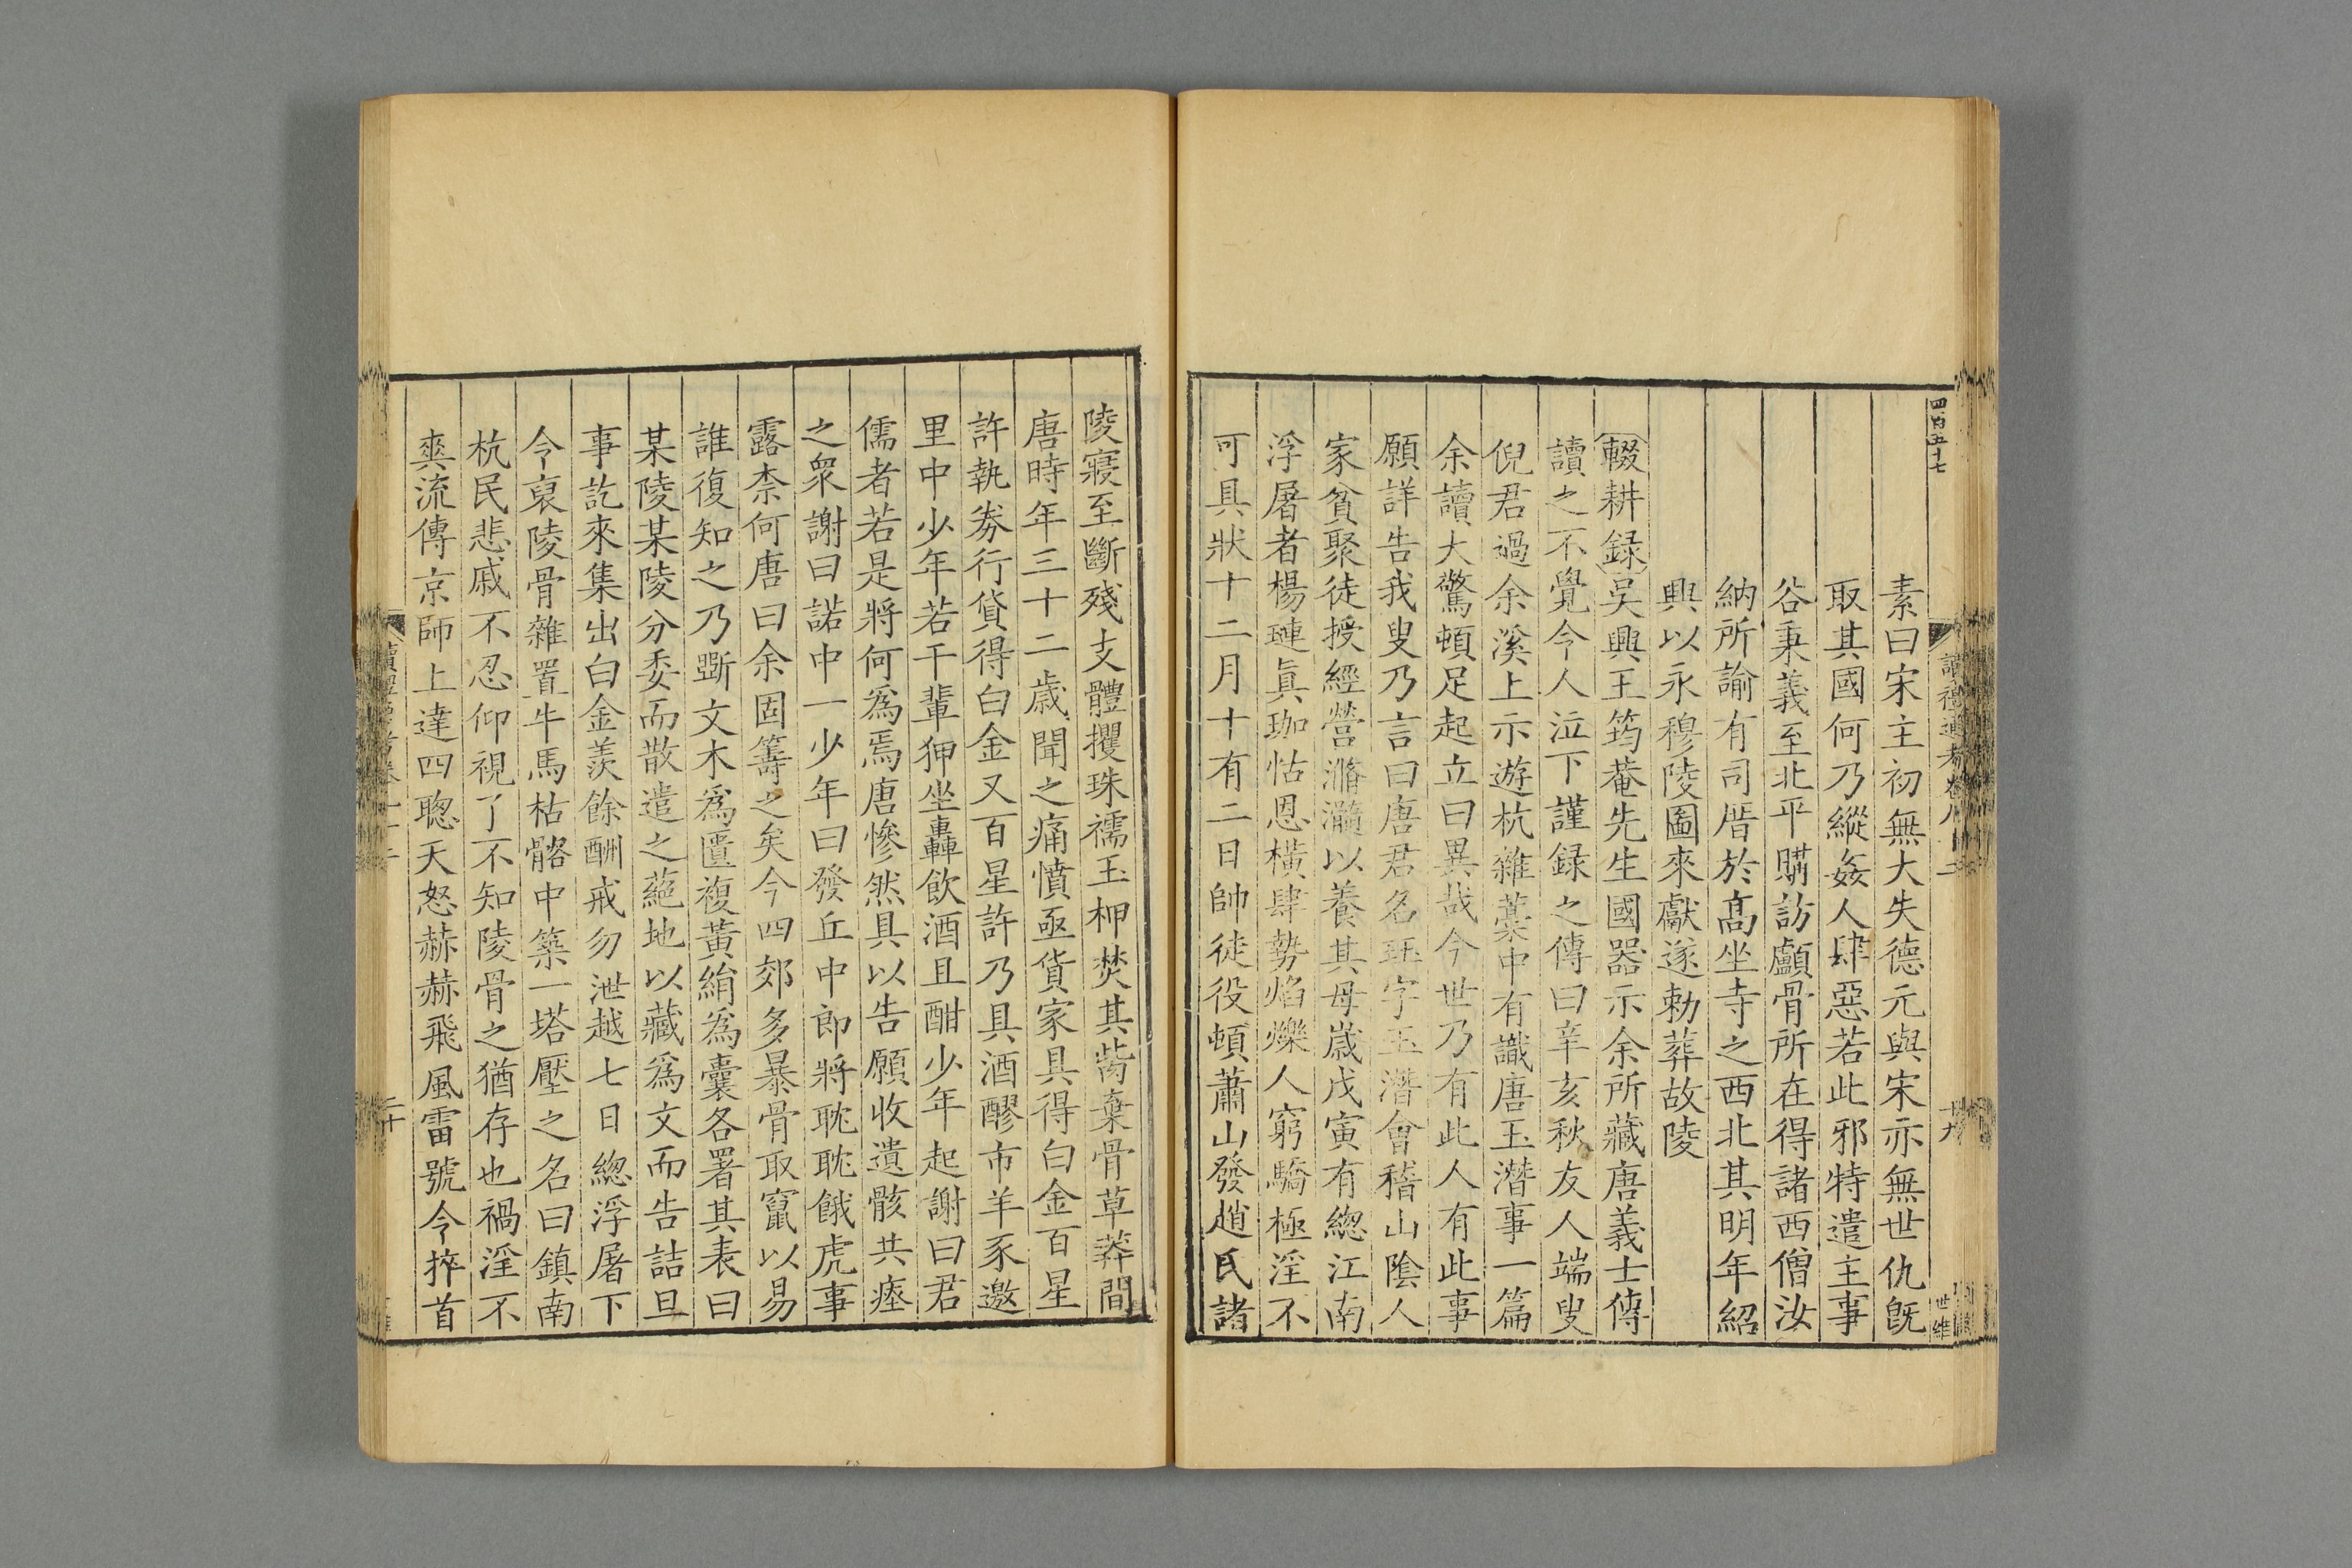 四百五十七
讀禮通考卷八十二
十九
世維
素曰宋主初無大失德元與宋亦無世仇旣
取其國何乃縱姦人肆惡若此邪特遣主事
谷秉義至北平購訪顱骨所在得諸西僧汝
納所諭有司厝於髙坐寺之西北其明年紹
興以永穆陵圖來獻遂勅葬故陵
輟耕録吳興王筠菴先生國器示余所藏唐義士傳
讀之不覺令人泣下謹録之傳曰辛亥秋友人端叟
倪君過余溪上示遊杭雜藁中有識唐玉潛事一篇
余讀大驚頓足起立曰異哉今世乃有此人有此事
願詳告我叟乃言曰唐君名珏字玉潛會稽山隂人
家貧聚徒授經營滫瀡以養其母嵗戊寅有緫江南
浮屠者楊璉眞珈怙恩橫肆勢焰爍人窮驕極淫不
可具狀十二月十有二日帥徒役頓蕭山發趙氏諸
陵寢至斷殘支體攫珠襦玉柙焚其胔棄骨草莽間
唐時年三十二歲聞之痛憤亟貨家具得白金百星
許執劵行貸得白金又百星許乃具酒醪市羊豕邀
里中少年若干輩狎坐轟飲酒且酣少年起謝曰君
儒者若是將何爲焉唐慘然具以告願收遺骸共瘞
之衆謝曰諾中一少年曰發丘中郎將眈眈餓虎事
露柰何唐曰余固籌之矣今四郊多暴骨取竄以易
誰復知之乃斲文木爲匱複黃絹爲囊各署其表曰
某陵某陵分委而散遣之蕝地以藏爲文而告詰旦
事訖來集出白金羨餘酬戒勿泄越七日緫浮屠下
令裒陵骨雜置牛馬枯骼中築一塔壓之名曰鎮南
杭民悲戚不忍仰視了不知陵骨之猶存也禍淫不
爽流傳京師上達四聰天怒赫赫飛風雷號令捽首
二十